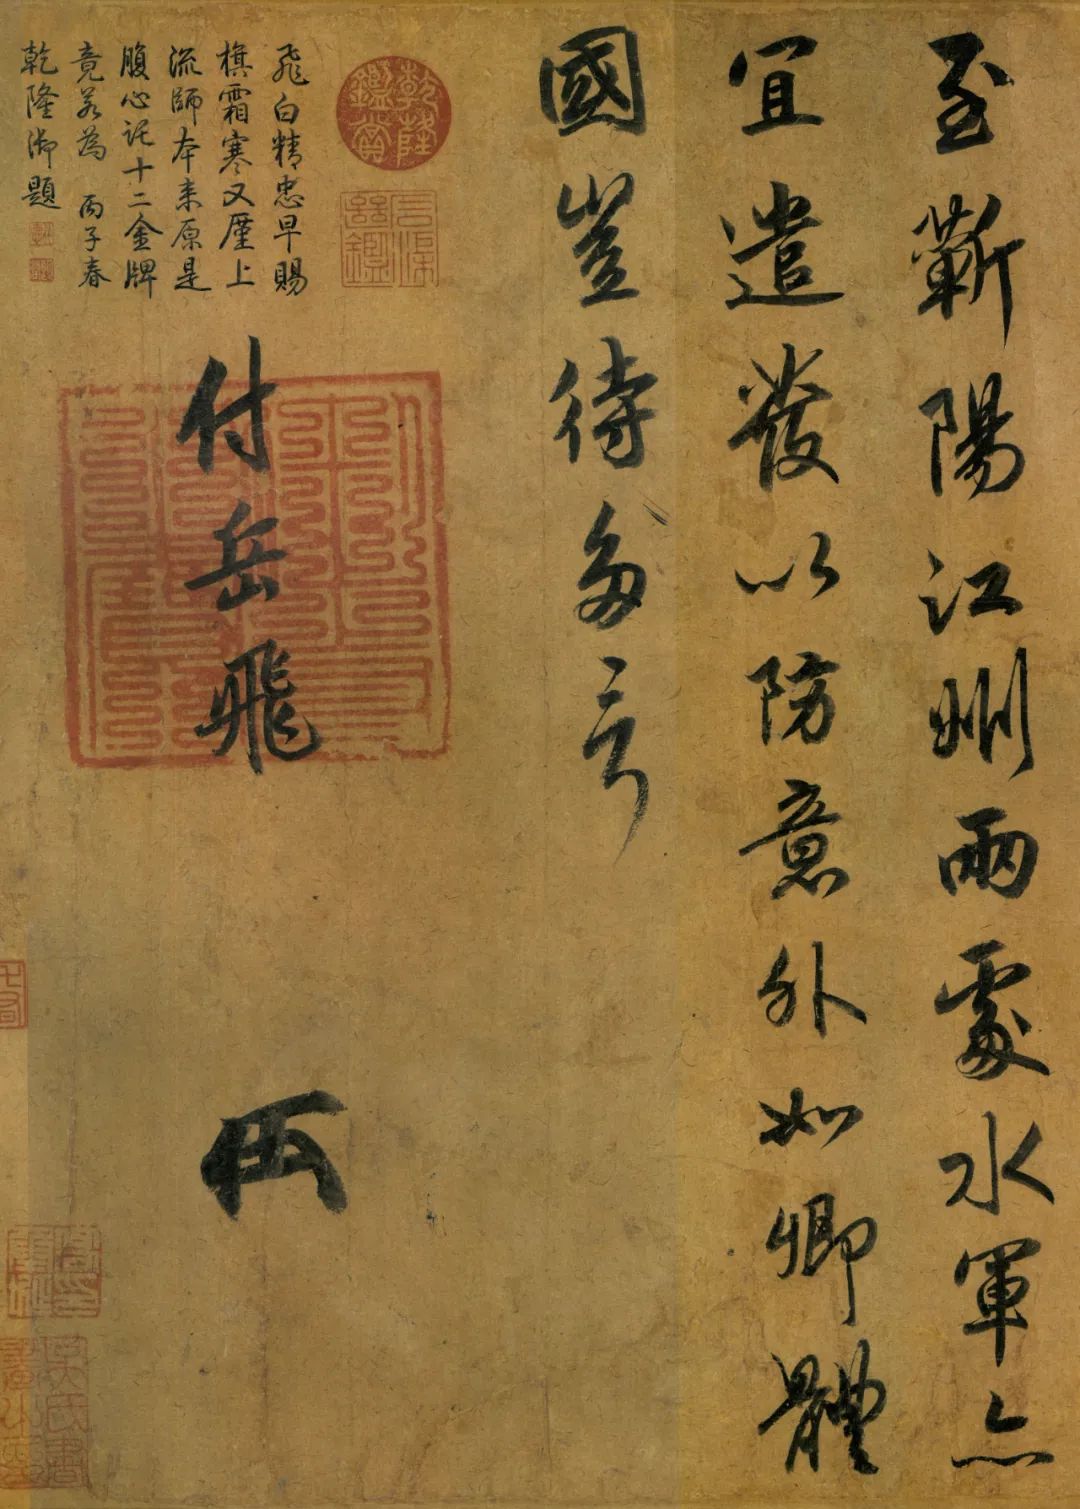 至蘄陽江州兩處水軍亦
宜遣發以防意外如卿體
國豈待多言
付岳飛
飛白精忠早賜
旗霜寒又厪上
流師本來原是
腹心託十二金牌
竟若為 丙子春
乾隆御題
乾隆鑑賞
三希堂精鑑璽